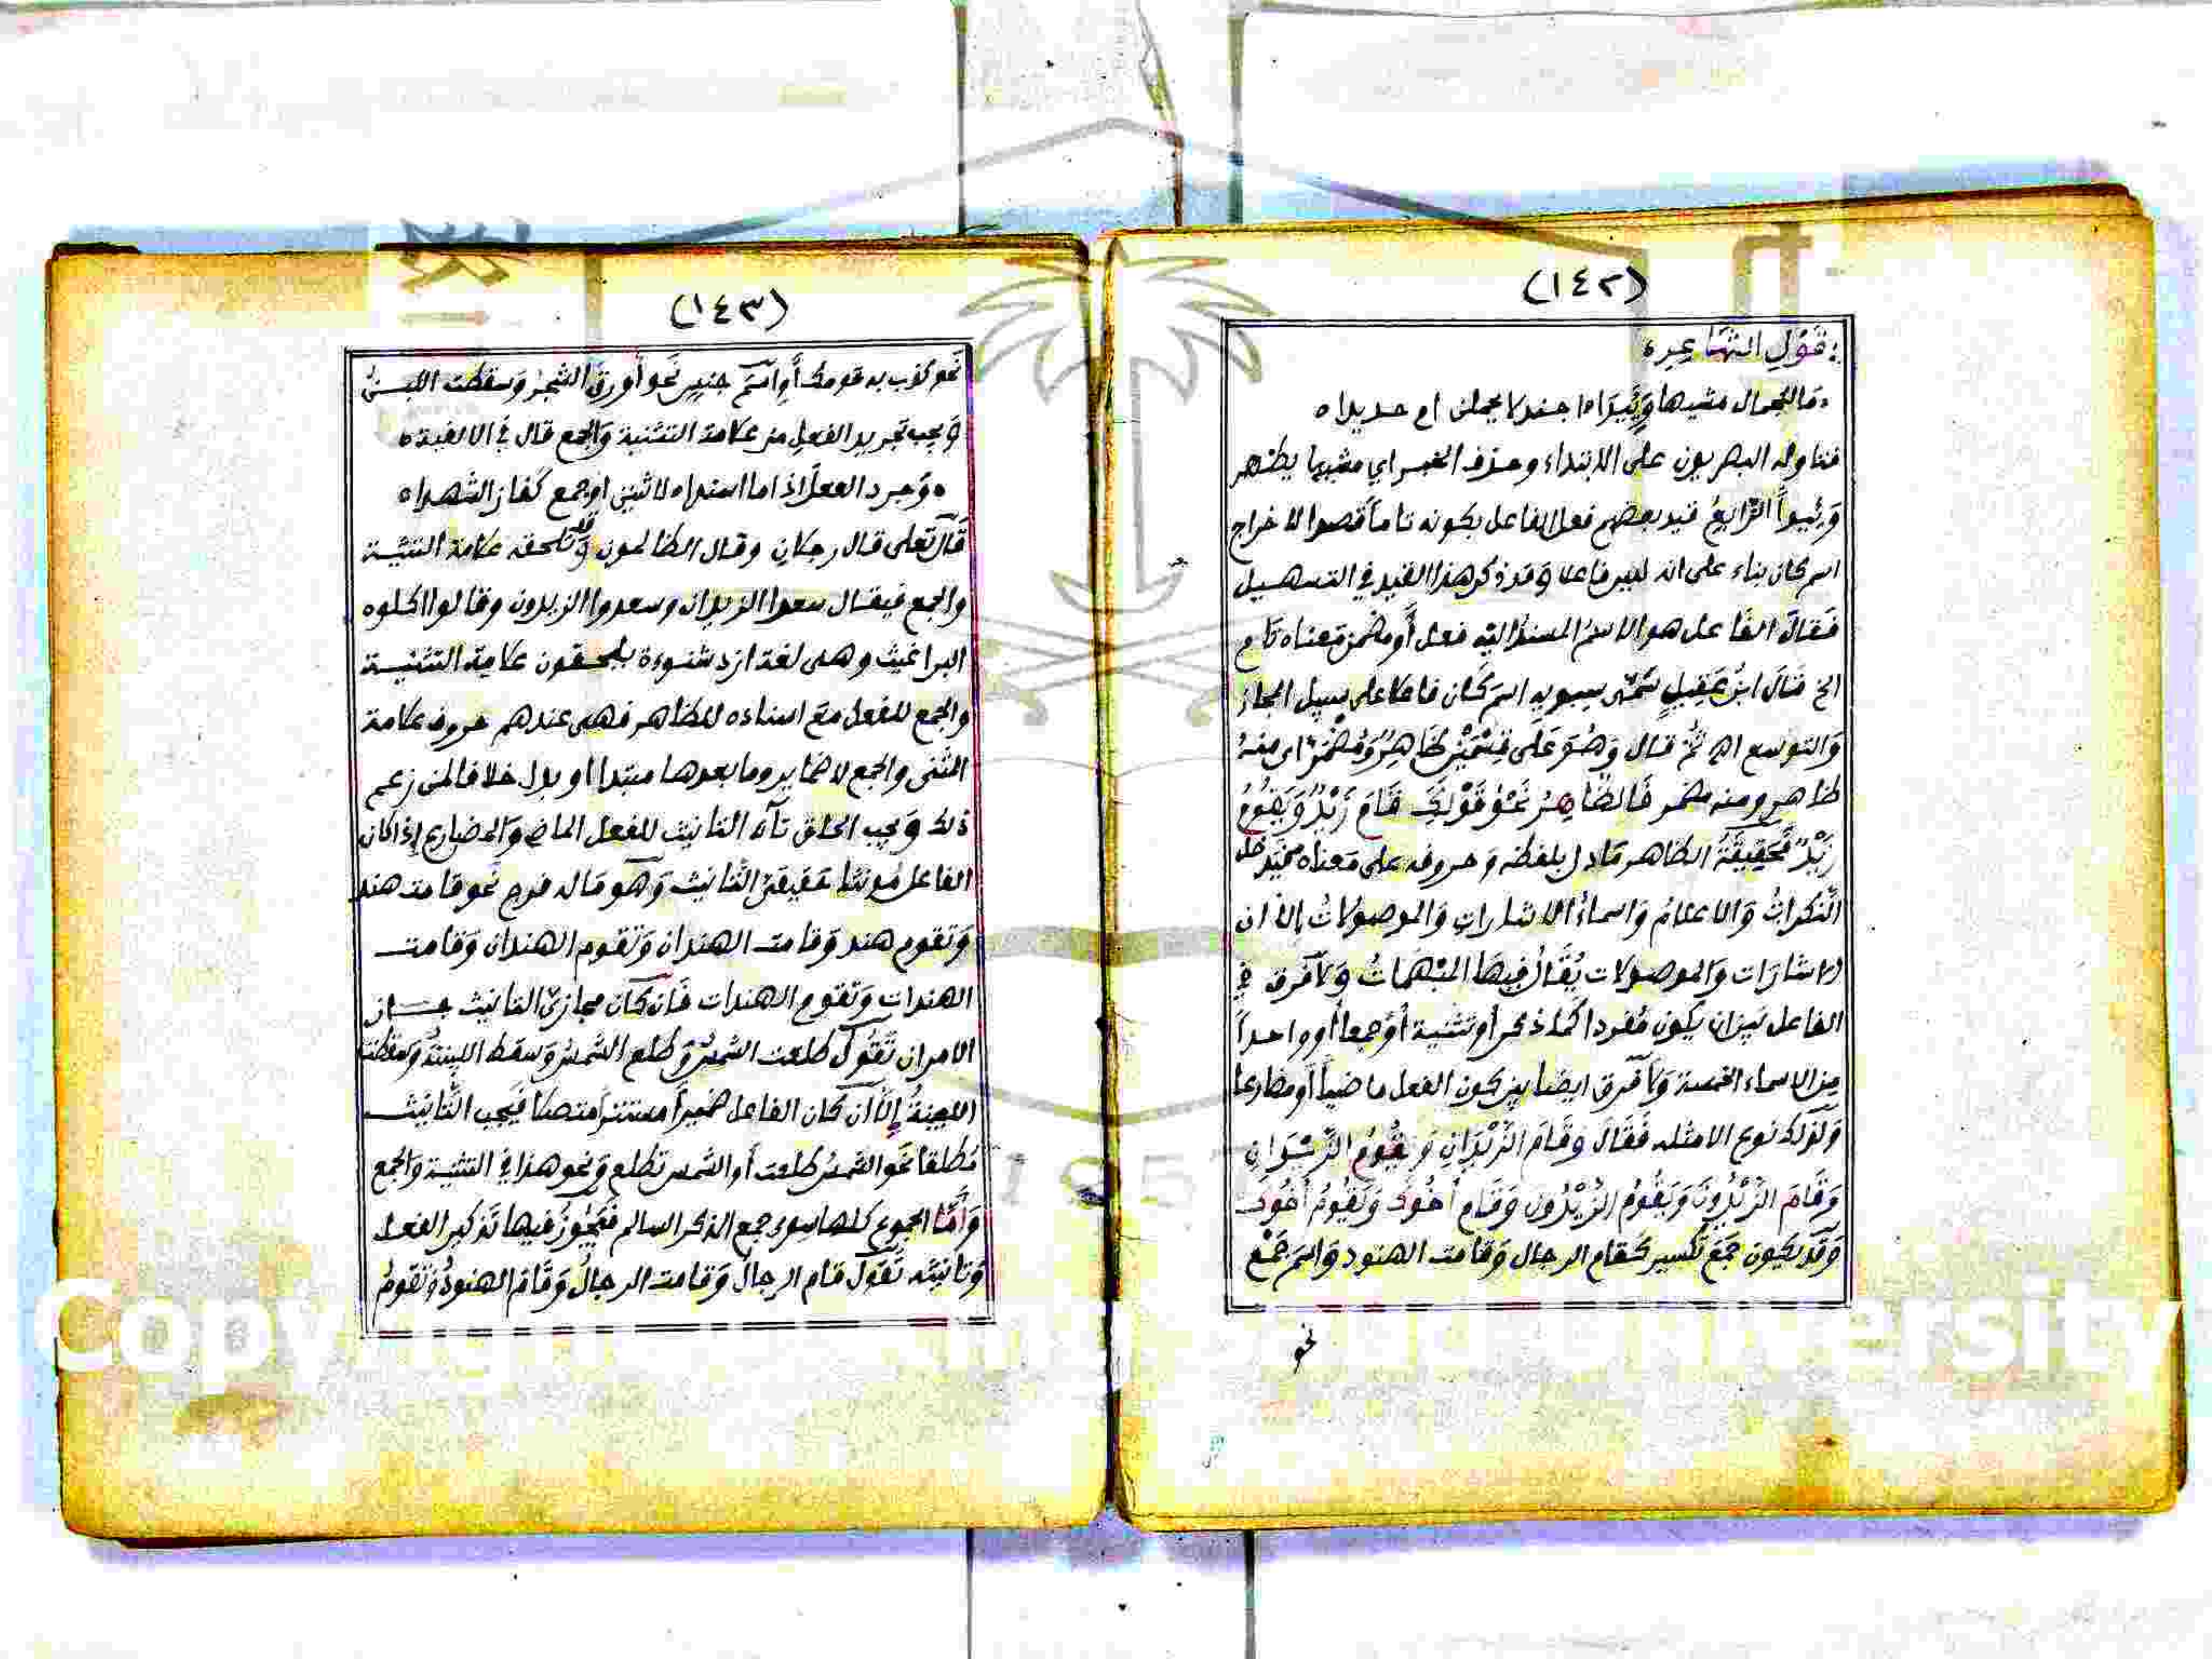 (١٤٢)
قَوْلِ الشَّاعِرِ
مَا للجمال مشيها وَئِيدَاه اجندلا يحملن ام حديداه
فتاوله البصريون على الابتداء وحذف الخبر اي مشيها يظهر
وَئيداً الرَّابِعُ قيد بعضهم فعل الفاعل بكونه تاماً قصدا لاخراج
اسم كان بناء على انه ليس فاعلا وَقد ذكر هذا القيد في التسهيل
فقال الفاعل هو الاسم المسند اليه فعل أو مضمن معناه تام
الخ قَالَ ابنُ عَقِيلٍ سَمَّى سيبويه اسم كَان فاعلا على سبيل المجاز
وَالتوسع اه ثُمَّ قال وَهُوَ عَلَى قِسْمَيْنِ ظَاهِرٌ وَمُضْمَرٌ اي منه
ظاهر ومنه مضمر فَالظَّاهِرُ نَحْوُ قَوْلِكَ قَامَ زَيْدٌ وَيَقُومُ
زَيْدٌ فَحَقِيقَةُ الظاهر مَا دل بلفظه وَحروفه على مَعناه فَيَدخل
النَّكراتُ وَالاعلامُ وَاسماءُ الاشاراتِ وَالموصولاتُ إلا ان
الاشارَات وَالموصولات يُقَالُ فِيهَا المبْهَمَاتُ وَلاَ فرق في
الفاعل بين ان يكون مُفردا كَما ذكر أو تثنية أَوْ جمعا أو واحداً
مِن الاسماء الخمسة وَلاَ فرق ايضا بين كون الفعل ماضياً أو مضارعا
وَلذلك نوع الامثله فَقَالَ وقَامَ الزَّيْدَانِ وَيَقُومُ الزَّيْدَانِ
وَقَامَ الزَّيْدُونَ وَيَقُومُ الزَّيْدُونَ وَقَامَ أَخُوكَ وَيَقُومُ أَخُوكَ
وَقَدْ يكون جَمعَ تكسير كَقام الرجال وَقامت الهنود وَاسمَ جَمْعٍ
نحو
(١٤٣)
نَحو كذب به قومك أَو اسمَ جنسٍ نَحو أورقَ الشجرُ وَسقطت اللبنُ
وَيجب تجريد الفعلِ من علامة التثنية وَالجمع قال في الالفية
وَجرد الفعل اذا ما اسندا لاثنين او جمع كفاز الشهدا
قَالَ تعلى قال رجلان وقال الظالمون وَقد تلحقه علامة التثنية
والجمع فيقال سعدا الزيدان وسعدوا الزيدون وقالوا اكلوه
البراغيث وهى لغة ازد شنوءة يلحقون علامة التثنية
والجمع للفعل مع اسناده للظاهر فهى عندهم حروف علامة
المثنى والجمع لا ضماير وما بعدها مبتدا او بدل خلافا لمن زعم
ذلك وَيجب الحاق تَآء التانيث للفعل الماض وَالمضارع إذا كان
الفاعل مُونثا حَقيقىَ التَّانيث وَهو مَا له فرج نحو قامت هند
وَتقوم هند وَقامت الهندان وَتقوم الهندان وَقامت
الهندات وَتقوم الهندات فَان كان مجازىَّ التانيث جاز
الامران تَقُولُ طلعت الشمسُ وَطلع الشمسُ وَسقط اللبنةُ وَسقطت
اللبنةُ إلاَّ أن كان الفاعل ضَميراً مستتراً متصلا فَيجب التَّانيث
مُطلقا نَحو الشمسُ طلعت أو الشمس تطلع وَنحو هذا في التثنية وَالجمع
وَأَمَّا الجموع كلها سوى جمع الذكر السالم فَيَجُوزُ فيها تَذكير الفعل
وَتانيثه تَقولُ قام الرجالُ وَقامت الرجالُ وَقَامَ الهنودُ وَتقومُ
1957